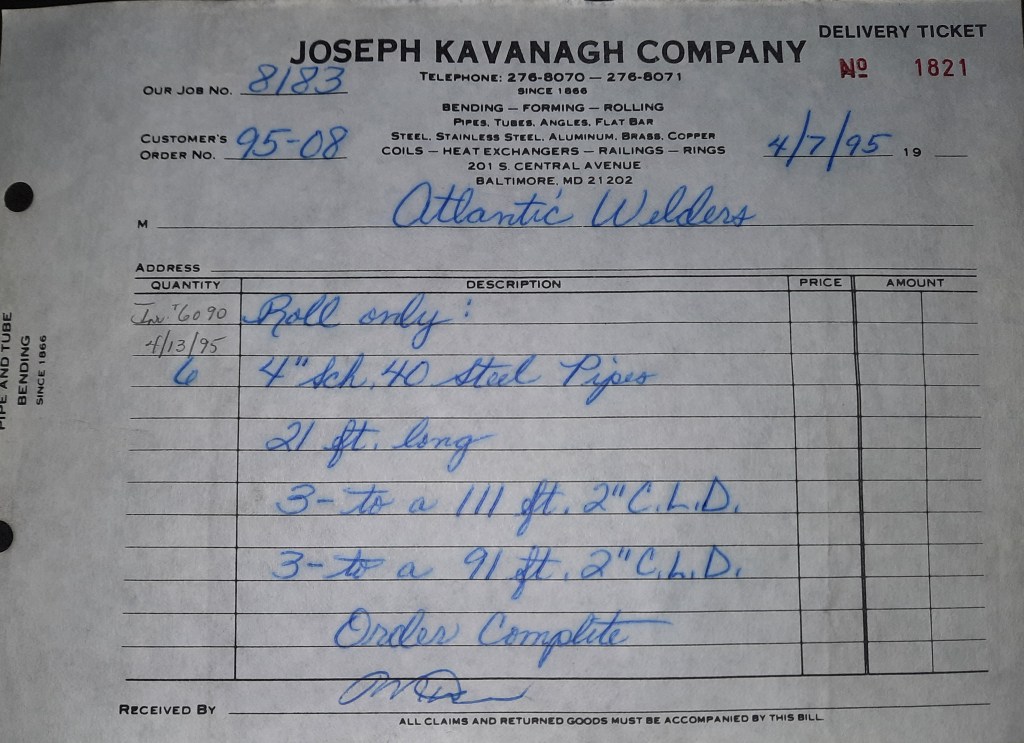 DELIVERY TICKET
JOSEPH KAVANAGH COMPANY
Nº 1821
TELEPHONE: 276-8070 — 276-8071
SINCE 1866
OUR JOB NO. 8183
BENDING — FORMING — ROLLING
PIPES, TUBES, ANGLES, FLAT BAR
STEEL, STAINLESS STEEL, ALUMINUM, BRASS, COPPER
COILS — HEAT EXCHANGERS — RAILINGS — RINGS
201 S. CENTRAL AVENUE
BALTIMORE, MD 21202
CUSTOMER'S
ORDER NO. 95-08
4/7/95 19
M Atlantic Welders
ADDRESS
QUANTITY DESCRIPTION PRICE AMOUNT
Inv. #6090 Roll only:
4/13/95
6 4" Sch. 40 Steel Pipes
21 ft. long
3- to a 111 ft. 2" C.L.D.
3- to a 91 ft. 2" C.L.D.
Order Complete
RECEIVED BY
ALL CLAIMS AND RETURNED GOODS MUST BE ACCOMPANIED BY THIS BILL
PIPE AND TUBE
BENDING
SINCE 1866